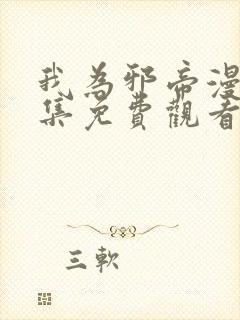 我為邪帝漫
集免費觀看
三軟